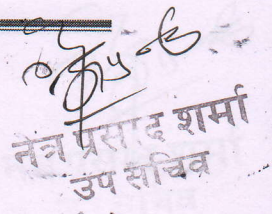 नेत्र प्रसाद शर्मा
उप सचिव